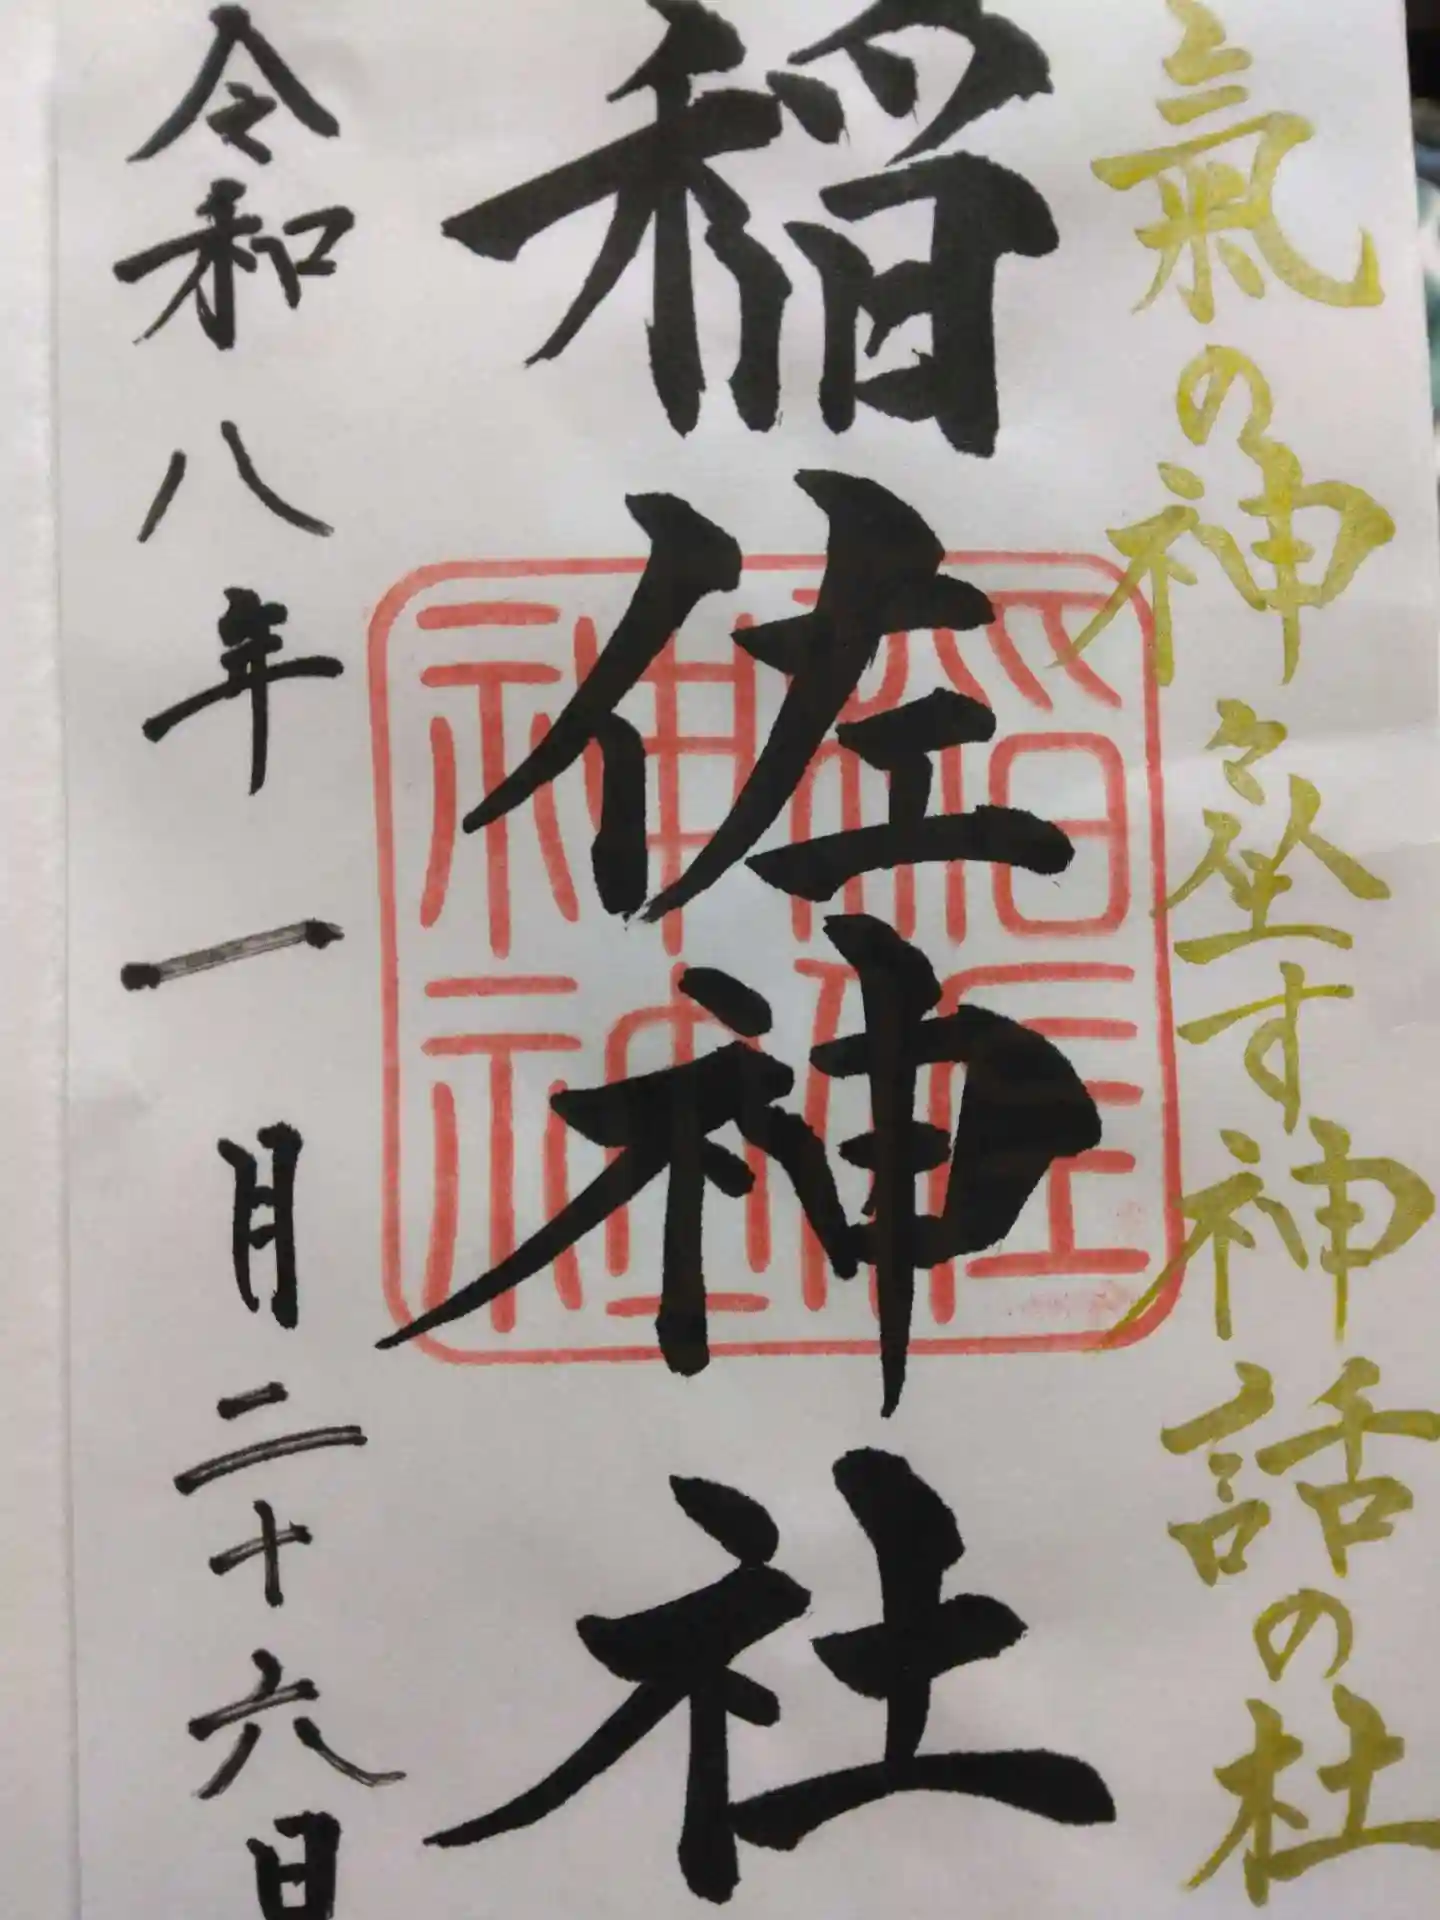 氣の神々坐す神話の杜
稲佐神社
稲佐
神社
令和八年一月二十六日